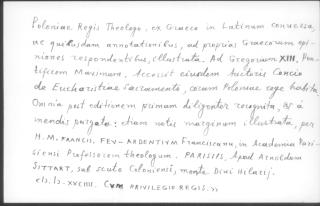 Poloniae Regis Theologo, ex Graeco in Latinum conuersa,
ac quibusdam annotationibus, ad propias Graecorum opi-
niones respondentibus, illustrata. Ad Gregorium XIII, Pon-
tificem Maximum. Accessit eiusdem auctoris Concio
de Eucharistiae Sacramento, coram Poloniae rege habita
Omnia post editionem primam diligenter recognita, & a
mendis purgata: etiam notis marginum illustrata, per
H. M. FRANCIS. FEV-ARDENTIVM Franciscanu, in Academia Pari-
siensi Professorem theologum. PARISIIS, Apud Arnoldum
SITTART, sub scuto Coloniensi, monte Diui Hilarij.
CVM PRIVILEGIO REGIS. »